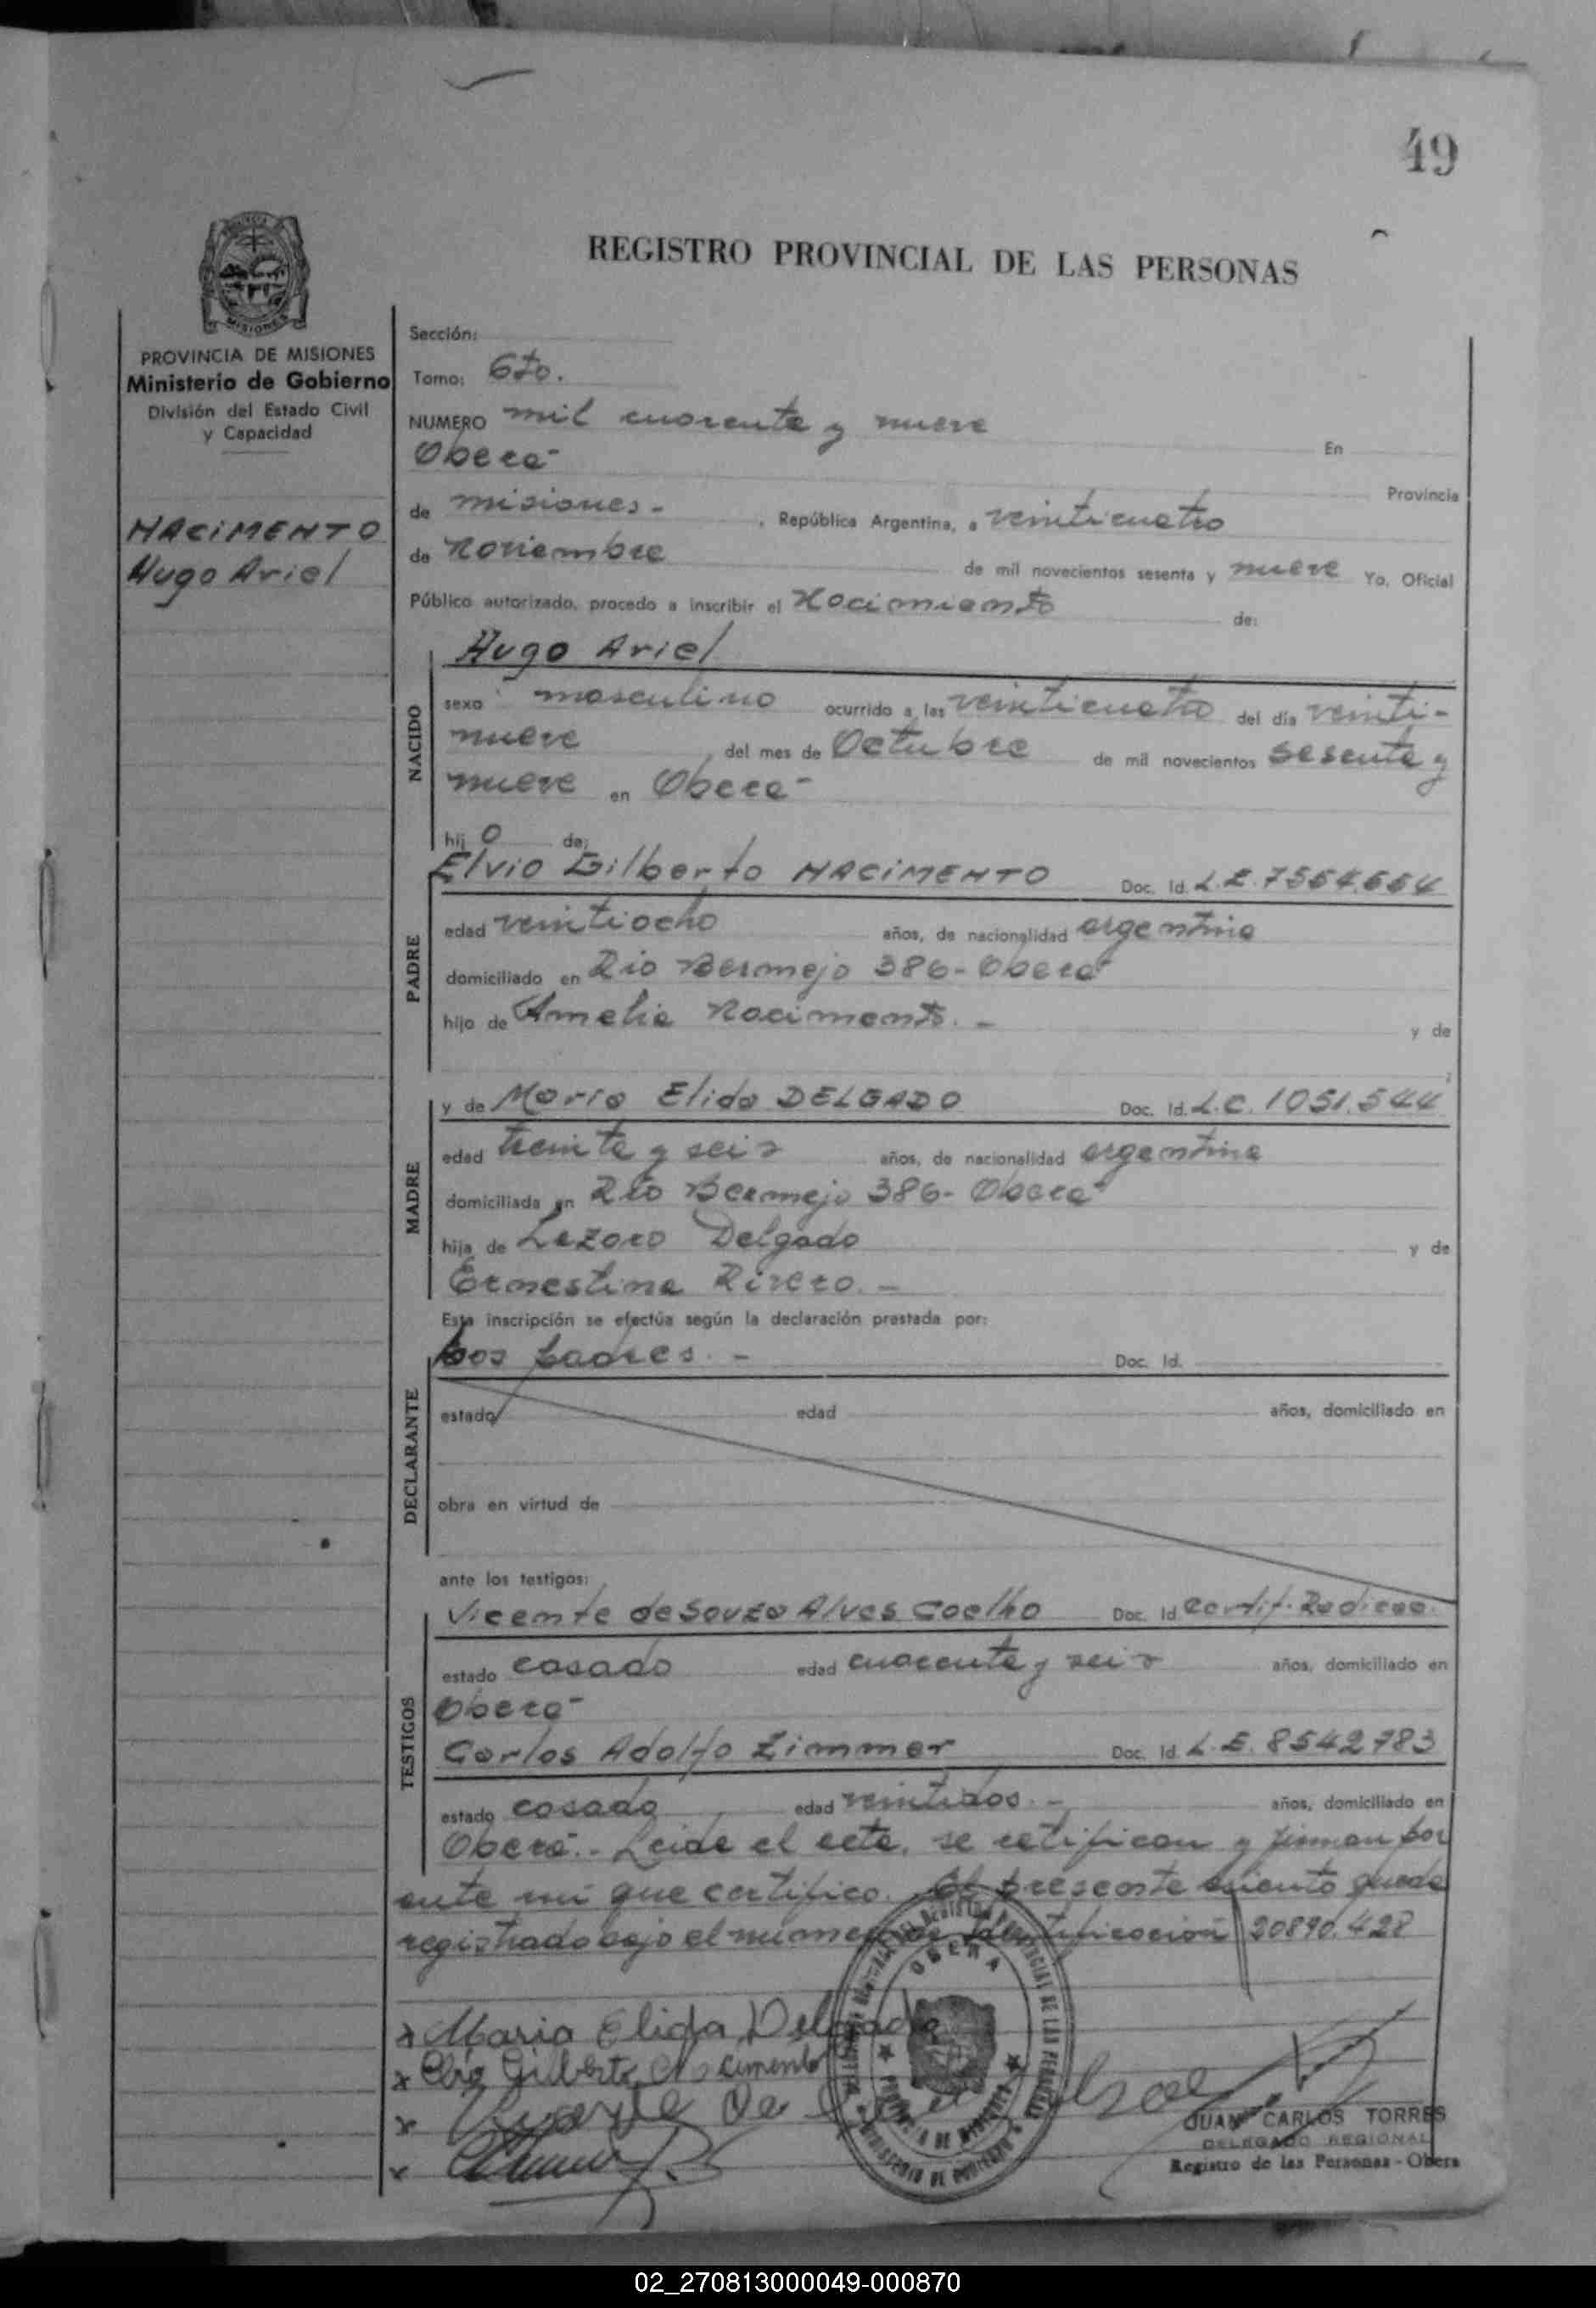 49
REGISTRO PROVINCIAL DE LAS PERSONAS
PROVINCIA DE MISIONES
Ministerio de Gobierno
División del Estado Civil
y Capacidad
NACIMENTO
Hugo Ariel
Sección:
Tomo: 6to.
NUMERO mil cuarenta y nueve En
Oberá - Provincia
de misiones - , República Argentina, a veinticuatro
de noviembre de mil novecientos sesenta y nueve Yo, Oficial
Público autorizado, procedo a inscribir el Nacimiento de:
NACIDO
Hugo Ariel
sexo masculino ocurrido a las veinticuatro del día veinti-
nueve del mes de Octubre de mil novecientos sesenta y
nueve en Oberá -
hij o de:
PADRE
Elvio Gilberto NACIMENTO Doc. Id. L.E. 7554.654
edad veintiocho años, de nacionalidad argentina
domiciliado en Rio Bermejo 386 - Oberá
hijo de Amelia Nacimento. - y de
MADRE
y de Maria Elida DELGADO Doc. Id. L.C. 1051.544
edad treinta y seis años, de nacionalidad argentina
domiciliada en Río Bermejo 386 - Oberá
hija de Lazaro Delgado y de
Ernestina Rivero. -
Esta inscripción se efectúa según la declaración prestada por:
DECLARANTE
Los padres. - Doc. Id.
estado edad años, domiciliado en
obra en virtud de
ante los testigos:
TESTIGOS
Vicente de Souza Alves Coelho Doc. Id. Certif. Radicac.
estado casado edad cuarenta y seis años, domiciliado en
Oberá -
Carlos Adolfo Zimmer Doc. Id. L.E. 8542783
estado casado edad veintidos. - años, domiciliado en
Oberá. - Leida el acta, se ratifican y firman por
ante mi que certifico. El presente asiento queda
registrado bajo el numero de Identificación 20890.428
x Maria Elida Delgado
x Elvio Gilberto Nacimento
x Vicente De
x
OBERA
PROVINCIA DE MISIONES
MINISTERIO DE GOBIERNO
JUAN CARLOS TORRES
DELEGADO REGIONAL
Registro de las Personas - Obera
02_270813000049-000870